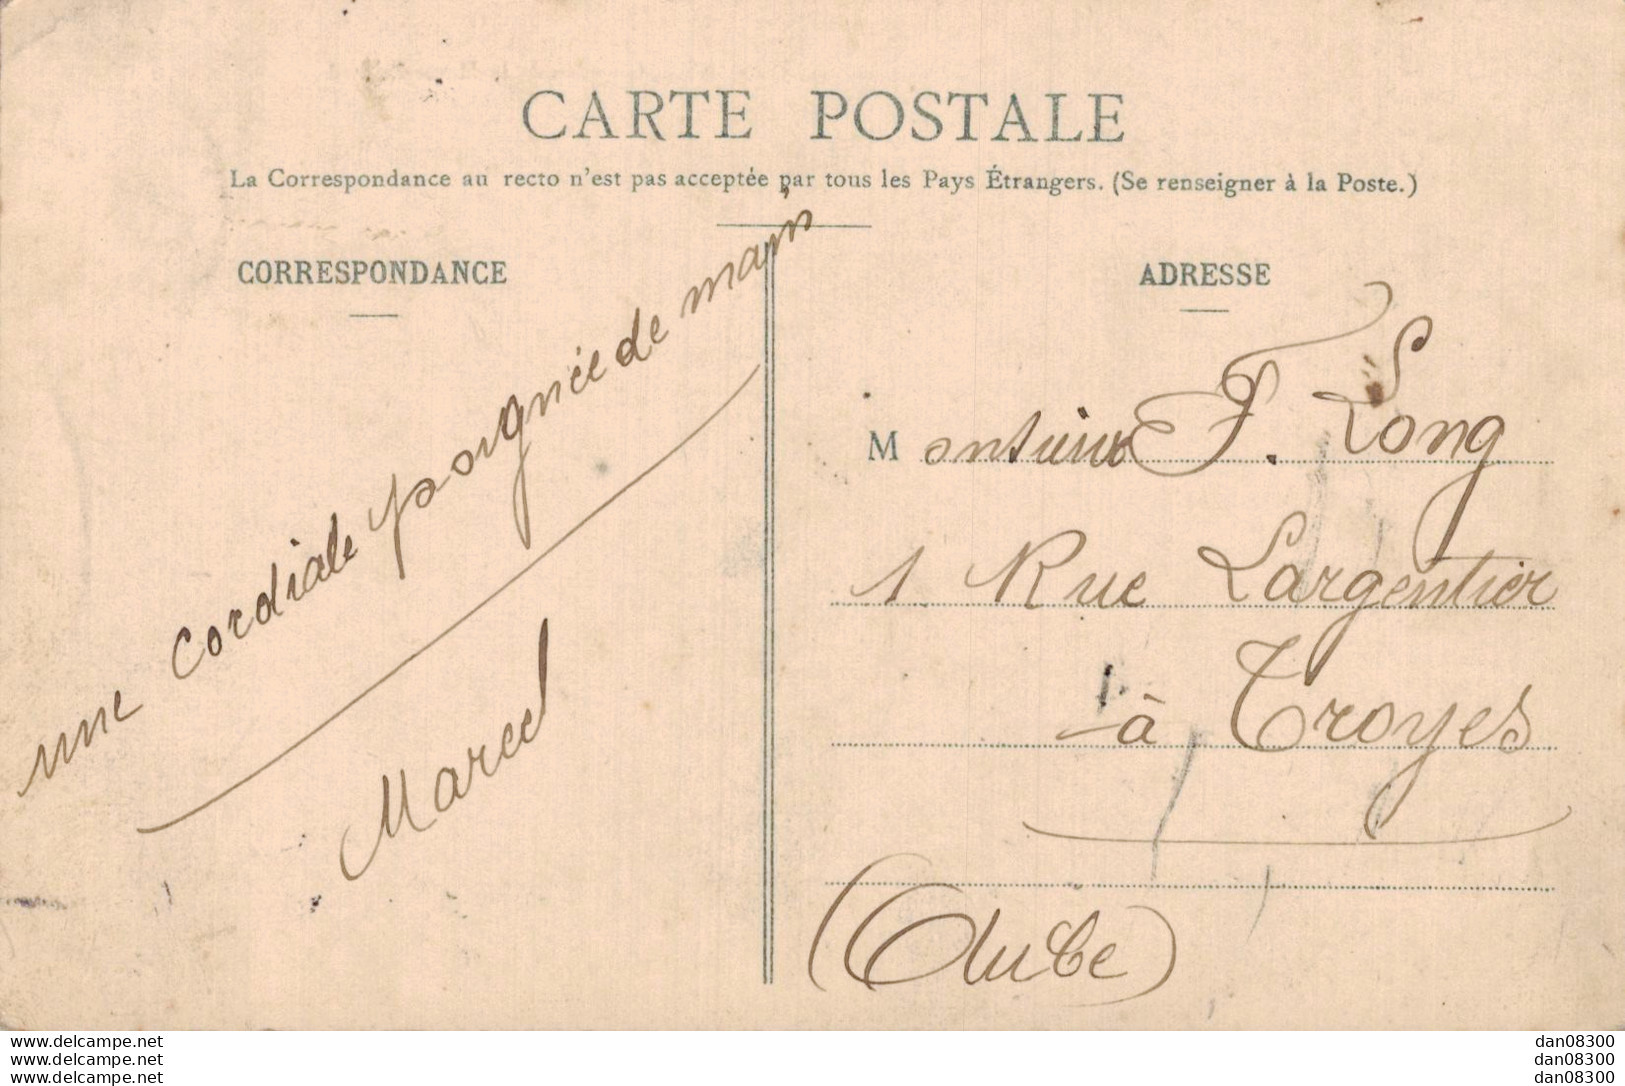 CARTE POSTALE
La Correspondance au recto n'est pas acceptée par tous les Pays Étrangers. (Se renseigner à la Poste.)
CORRESPONDANCE
une cordiale poignée de main
Marcel
ADRESSE
Monsieur F. Long
1 Rue Largentier
à Troyes
(Aube)
www.delcampe.net
marcel
www.delcampe.net
marcel
www.delcampe.net
marcel
dan08300
dan08300
dan08300